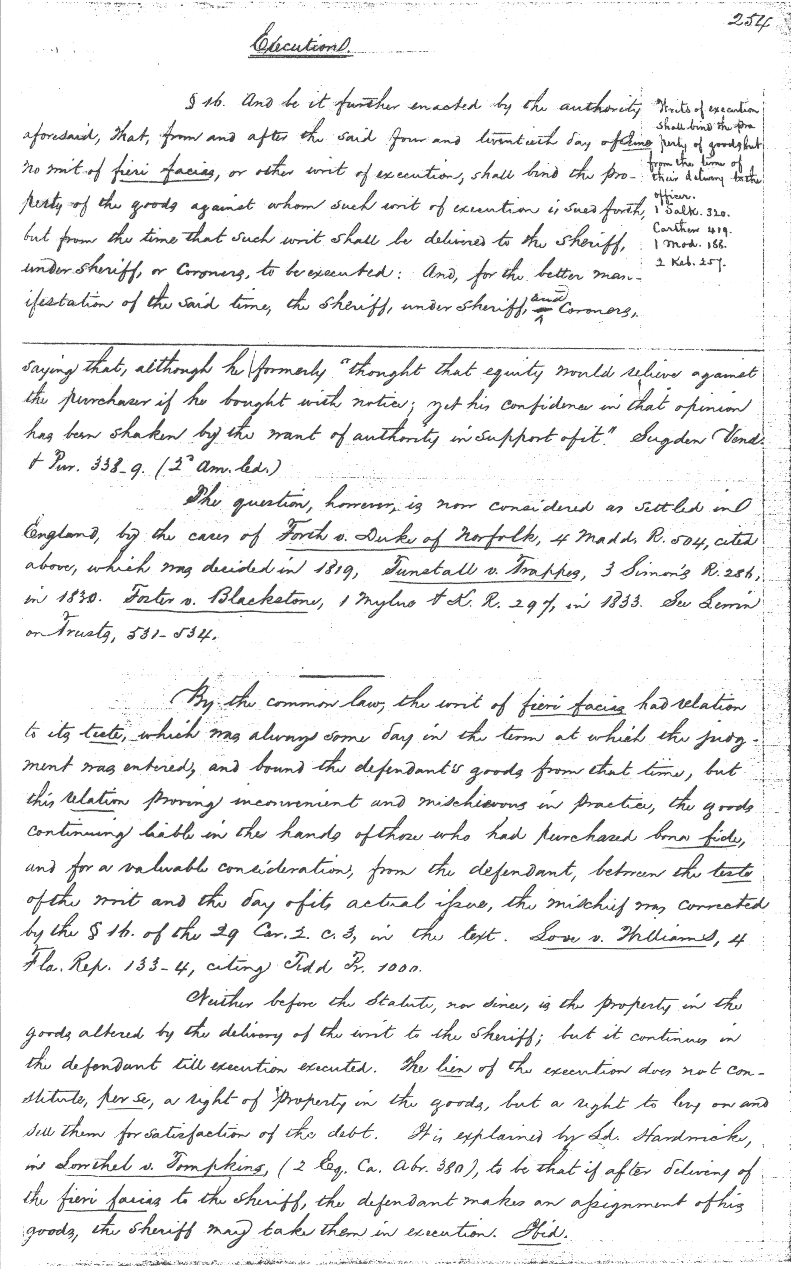 254
Executions.
§ 16. And be it further enacted by the authority
aforesaid, that, from and after the said four and twentieth day of June
no writ of fieri facias, or other writ of execution, shall bind the pro-
perty of the goods against whom such writ of execution is sued forth,
but from the time that such writ shall be delivered to the sheriff,
under sheriff, or Coroners, to be executed: And, for the better man-
ifestation of the said time, the sheriff, under sheriff, and Coroners,
Writs of execution
shall bind the pro
perty of goods but
from the time of
their delivery to the
officer.
1 Salk. 320.
Carthew 419.
1 Mod. 188.
2 Keb. 257.
saying that, although he formerly "thought that equity would relieve against
the purchaser if he bought with notice; yet his confidence in that opinion
has been shaken by the want of authority in support of it." Sugden Vend.
& Pur. 338-9. (2d Am. ed.)
The question, however, is now considered as settled in
England, by the cases of Forth v. Duke of Norfolk, 4 Madd. R. 504, cited
above, which was decided in 1819, Tunstall v. Trappes, 3 Simon's R. 286,
in 1830. Foster v. Blackstone, 1 Mylne & K. R. 297, in 1833. See Lewin
on Trusts, 531-534.
By the common law, the writ of fieri facias had relation
to its teste, which was always some day in the term at which the judg-
ment was entered, and bound the defendant's goods from that time, but
this relation proving inconvenient and mischievous in practice, the goods
continuing liable in the hands of those who had purchased bona fide,
and for a valuable consideration, from the defendant, between the teste
of the writ and the day of its actual issue, the mischief was corrected
by the § 16. of the 29 Car. 2. c. 3, in the text. Love v. Williams, 4
Fla. Rep. 133-4, citing Tidd Pr. 1000.
Neither before the Statute, nor since, is the property in the
goods altered by the delivery of the writ to the sheriff; but it continues in
the defendant till execution executed. The lien of the execution does not con-
stitute, per se, a right of property in the goods, but a right to levy on and
sell them for satisfaction of the debt. It is explained by Ld. Hardwicke,
in Lowthel v. Tompkins, (2 Eq. Ca. Abr. 380), to be that if after delivery of
the fieri facias to the sheriff, the defendant makes an assignment of his
goods, the sheriff may take them in execution. Ibid.